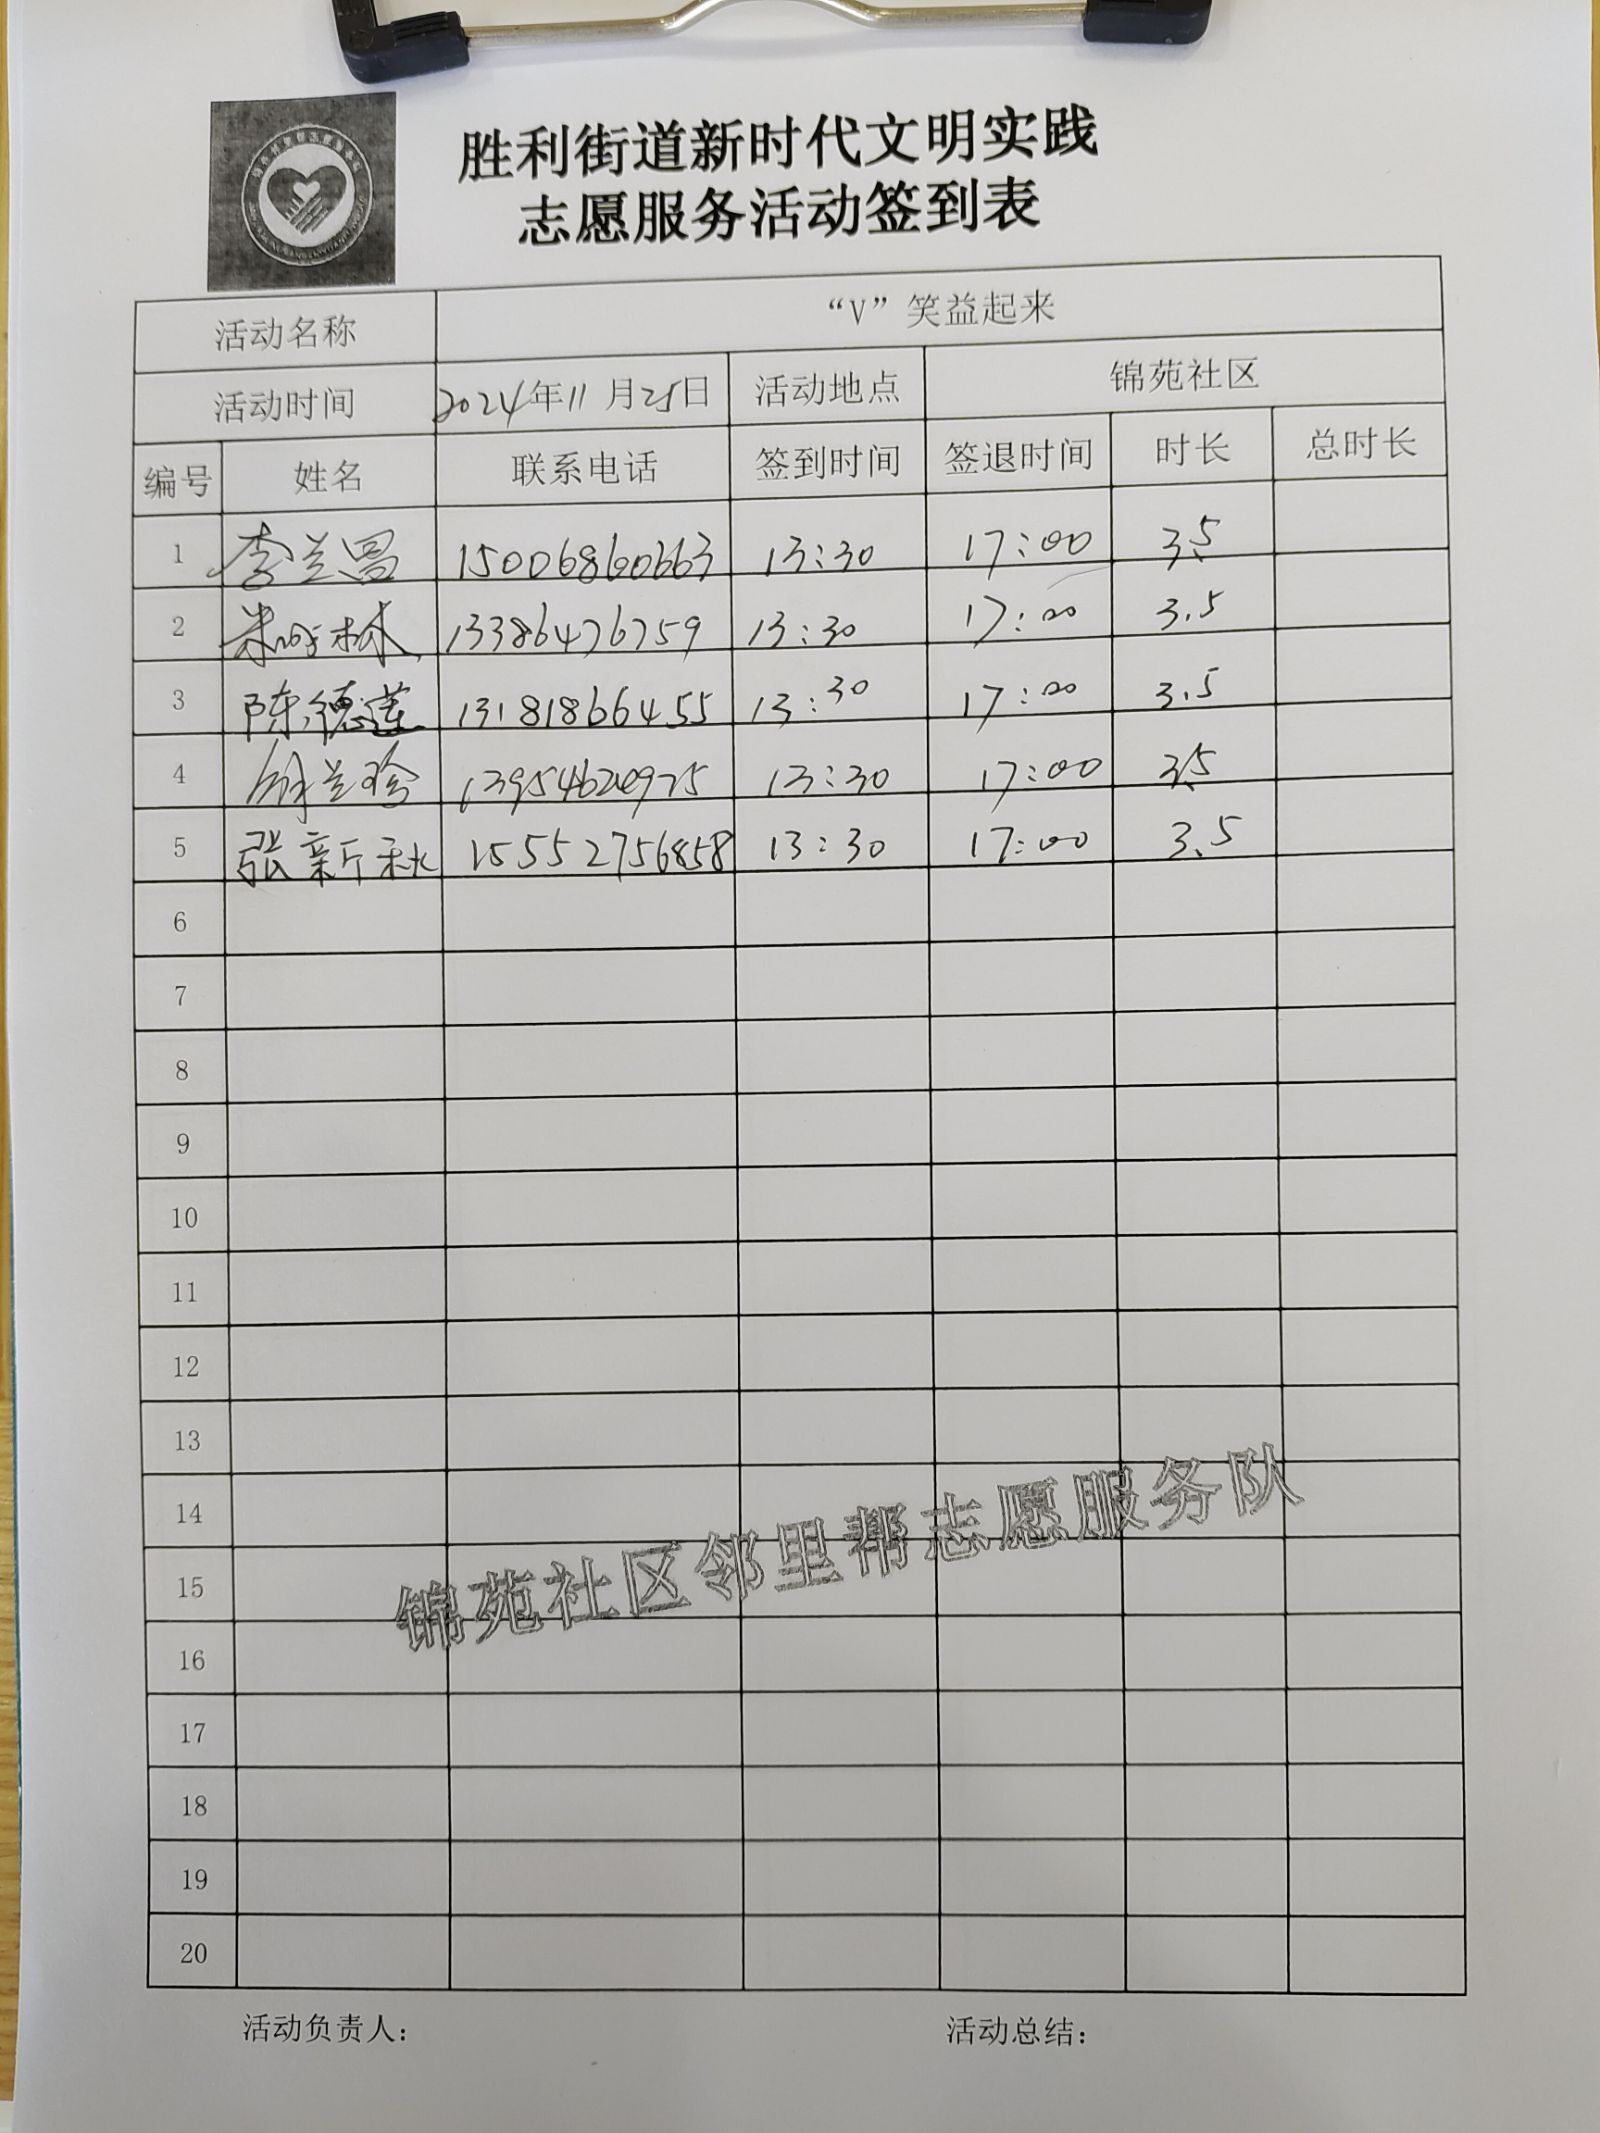 胜利街道新时代文明实践
志愿服务活动签到表
活动名称 “V”笑益起来
活动时间 2024年11月25日 活动地点 锦苑社区
编号 姓名 联系电话 签到时间 签退时间 时长 总时长
1 李兰昌 15006860663 13:30 17:00 3.5
2 林 13386476759 13:30 17:00 3.5
3 陈德莲 13181866455 13:30 17:00 3.5
4 兰珍 13:30 17:00 3.5
5 张新秋 15552756858 13:30 17:00 3.5
6
7
8
9
10
11
12
13
14
15
16
17
18
19
20
锦苑社区邻里帮志愿服务队
活动负责人：
活动总结：